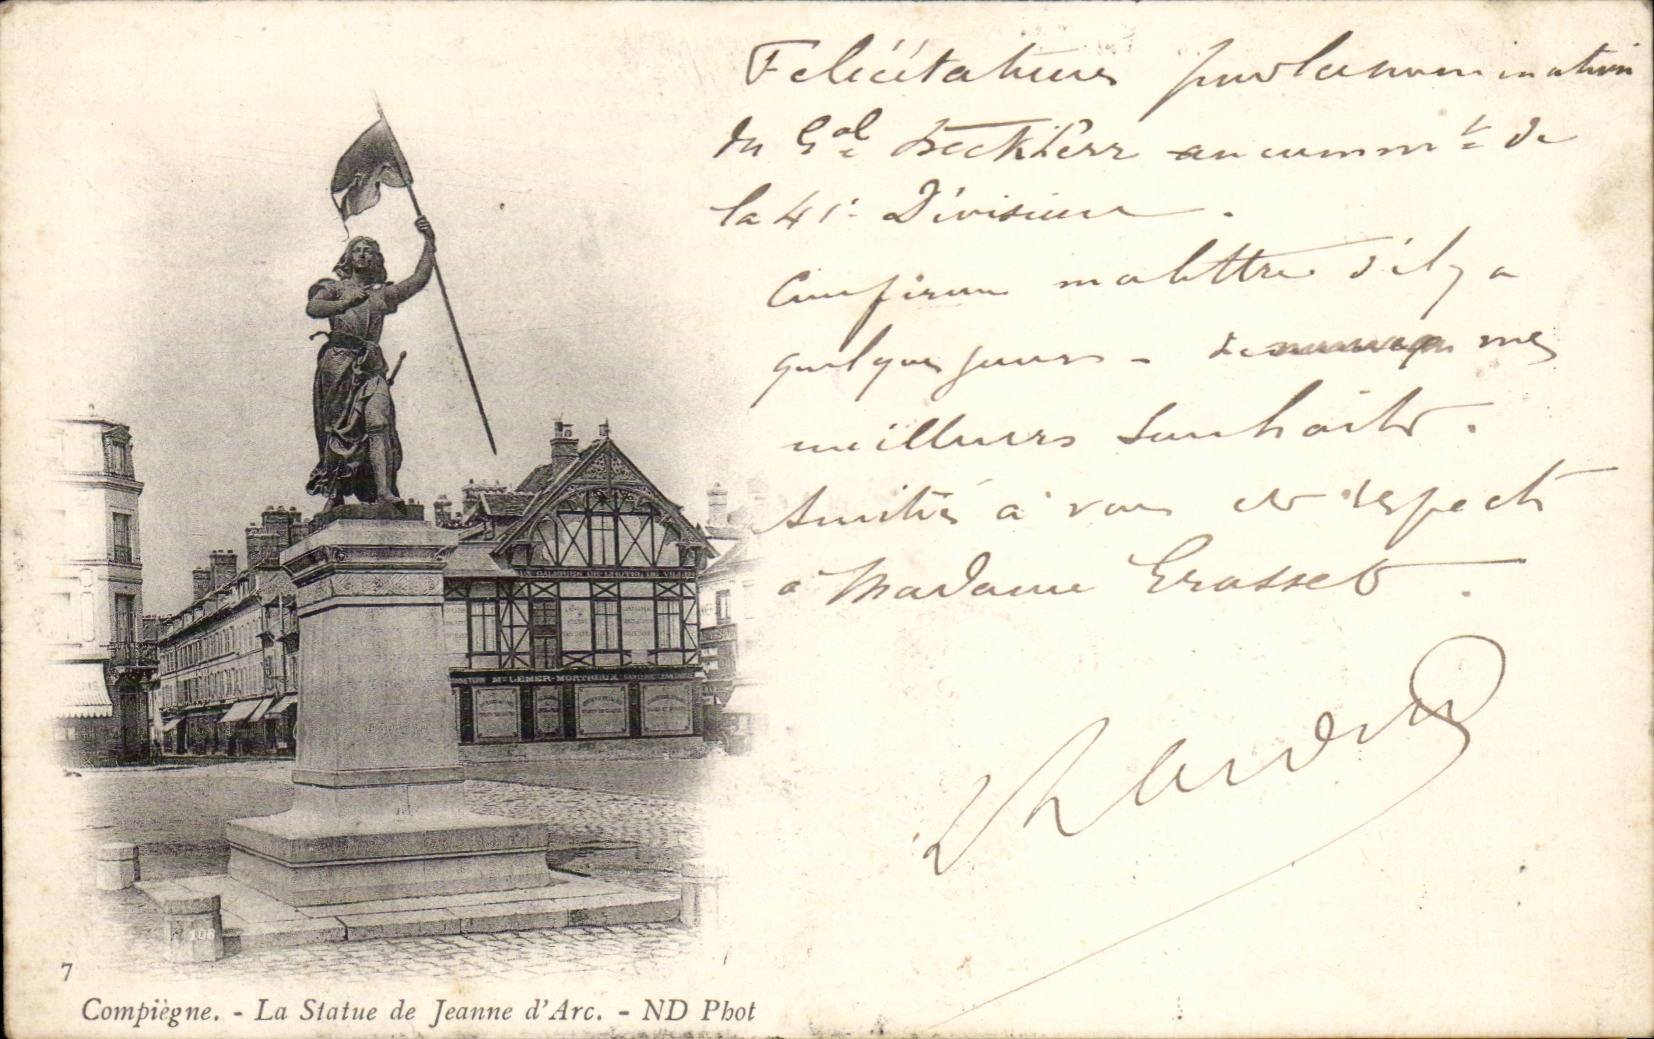 Felicitations pour la nomination
du Gal au commt de
la 41e Division.
Confirme ma lettre d'il y a
quelques jours - mes
meilleurs souhaits.
Amitiés à vous et respects
à Madame Grasset.
GALERIES DE L'HOTEL DE VILLE
Mon LEMER-MORTREUX
108
7
Compiègne. - La Statue de Jeanne d'Arc. - ND Phot